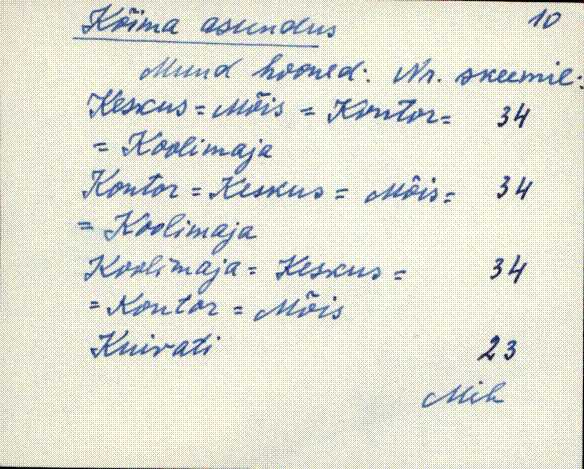 10
Kõima asundus
Muud hooned: Nr. skeemil:
Keskus = Mõis = Kontor = 34
= Koolimaja
Kontor = Keskus = Mõis = 34
= Koolimaja
Koolimaja = Keskus = 34
= Kontor = Mõis
Kuivati 23